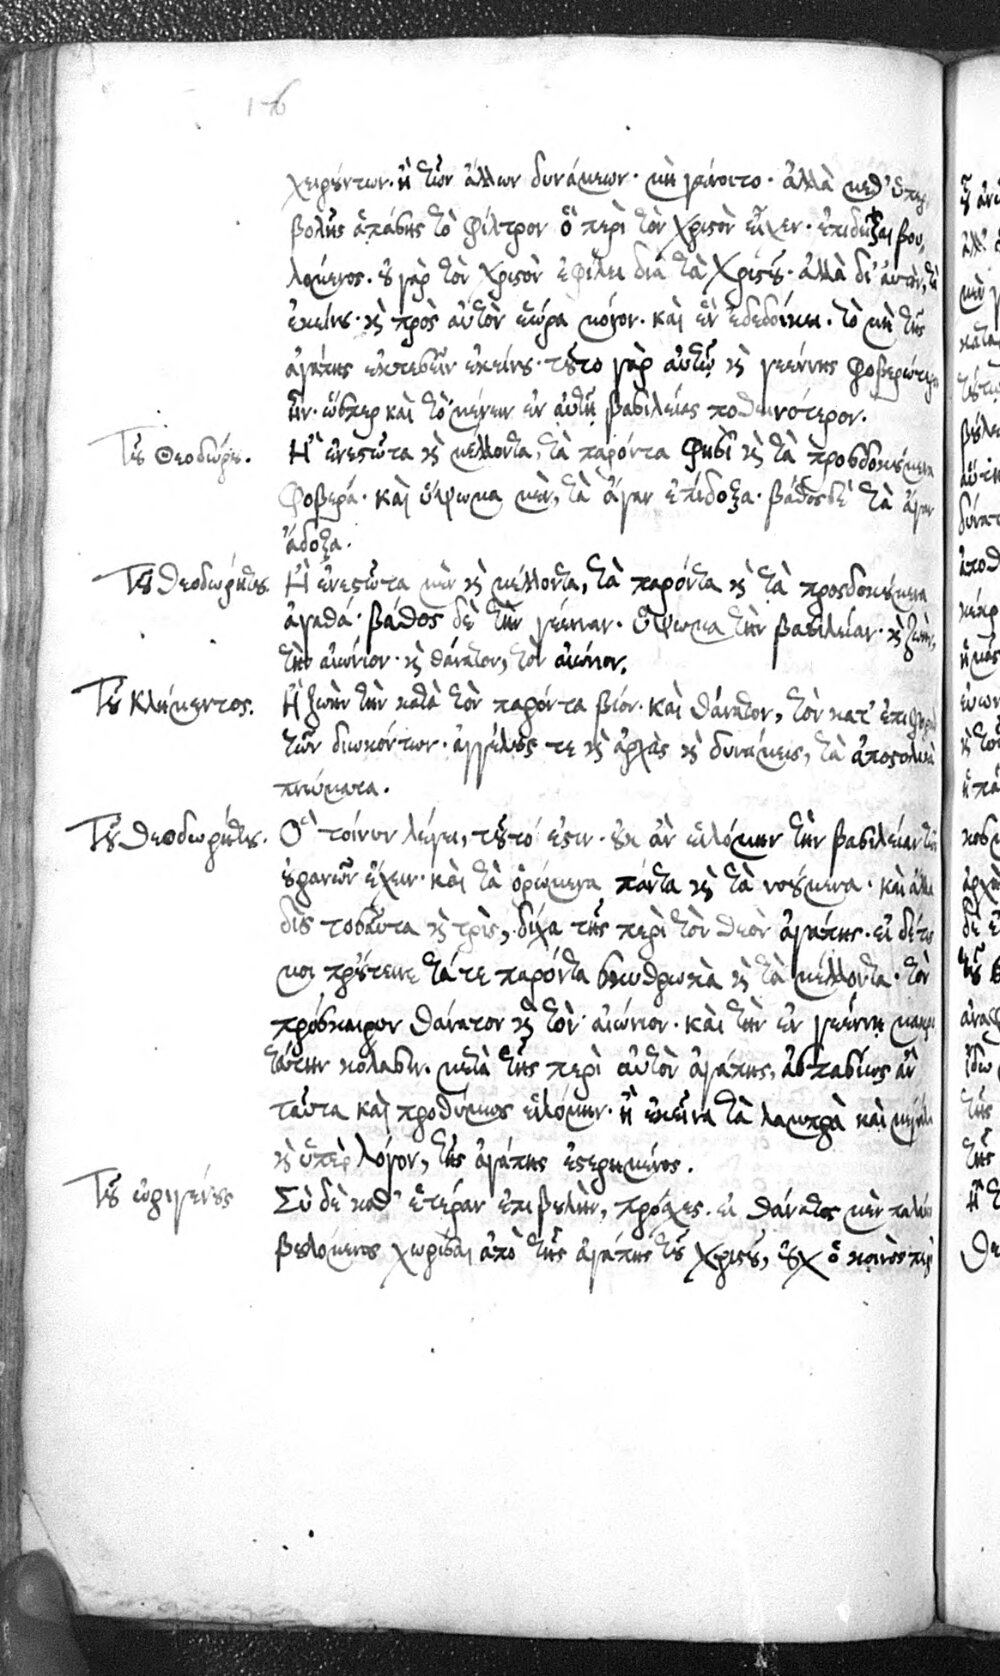 176
χειρούντων· ἢ τῶν ἄλλων δυνάμεων· μὴ γένοιτο· ἀλλὰ μεθ' ὑπερ
βολῆς ἁπάσης τὸ φίλτρον ὃ περὶ τὸν Χριστὸν εἶχεν· ἐπιδεῖξαι βου
λόμενος· οὐ γὰρ τὸν Χριστὸν ἐφίλει διὰ τὰ Χριστοῦ· ἀλλὰ δι' αὐτὸν, τὰ
ἐκείνου· καὶ πρὸς αὐτὸν ἑώρα μόνον· καὶ ἓν ἐδεδοίκει· τὸ μὴ τῆς
ἀγάπης ἐκπεσεῖν ἐκείνου· τοῦτο γὰρ αὐτῷ καὶ γεέννης φοβερώτερον
ἦν· ὥσπερ καὶ τὸ μένειν ἐν αὐτῇ βασιλείας ποθεινότερον.
Τοῦ Θεοδώρου. Ἢ ἐνεστῶτα καὶ μέλλοντα, τὰ παρόντα φησὶ καὶ τὰ προσδοκώμενα
φοβερά· καὶ ὕψωμα μὲν, τὰ ἄγαν ἐπίδοξα· βάθος δὲ τὰ ἄγαν
ἄδοξα.
Τοῦ Θεοδωρήτου. Ἢ ἐνεστῶτα μὲν καὶ μέλλοντα, τὰ παρόντα καὶ τὰ προσδοκώμενα
ἀγαθά· βάθος δὲ τὴν γέενναν· ὕψωμα τὴν βασιλείαν· καὶ ζωὴν,
τὴν αἰώνιον· καὶ θάνατον, τὸν αἰώνιον.
Τοῦ Κλήμεντος. Ἢ ζωὴν τὴν κατὰ τὸν παρόντα βίον· καὶ θάνατον, τὸν κατ' ἐπιφορὰν
τῶν διωκόντων· ἀγγέλους τε καὶ ἀρχὰς καὶ δυνάμεις, τὰ ἀποστατικὰ
πνεύματα.
Τοῦ Θεοδωρήτου. Ὃ τοίνυν λέγει, τοῦτό ἐστιν· οὐκ ἂν εἱλόμην τὴν βασιλείαν τῶν
οὐρανῶν ἔχειν· καὶ τὰ ὁρώμενα πάντα καὶ τὰ νοούμενα· καὶ ἄλλα
δὶς τοσαῦτα καὶ τρὶς, δίχα τῆς περὶ τὸν θεὸν ἀγάπης· εἰ δέ τις
μοι προὔτεινε τά τε παρόντα σκυθρωπὰ καὶ τὰ μέλλοντα· τὸν
πρόσκαιρον θάνατον καὶ τὸν αἰώνιον· καὶ τὴν ἐν γεέννῃ μακρο
τάτην κόλασιν· μετὰ τῆς περὶ αὐτὸν ἀγάπης, ἀσπασίως ἂν
ταῦτα καὶ προθύμως εἱλόμην· ἢ ἐκεῖνα τὰ λαμπρὰ καὶ μεγάλα
καὶ ὑπὲρ λόγον, τῆς ἀγάπης ἐστερημένος.
Τοῦ ὠριγένους Σὺ δὲ καθ' ἑτέραν ἐπιβολὴν, πρόσχες· εἰ θάνατος μὲν παλαίει
βουλόμενος χωρίσαι ἀπὸ τῆς ἀγάπης τοῦ Χριστοῦ, οὐχ ὁ κοινὸς περὶ